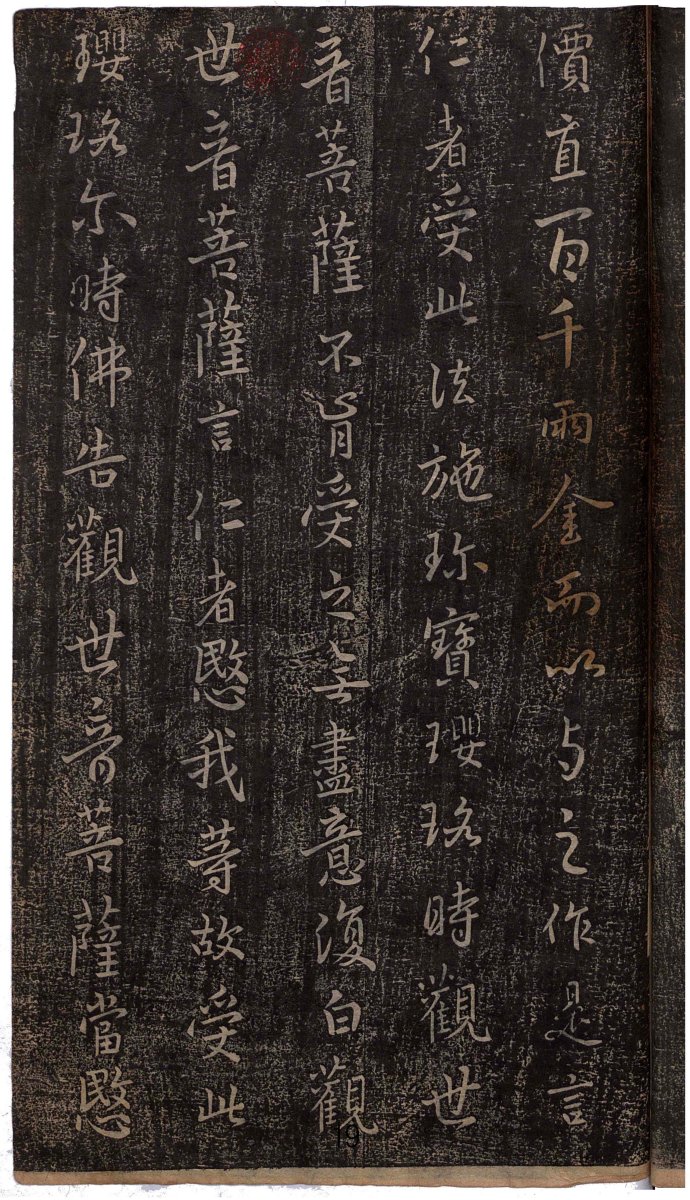 價直百千兩金而以与之作是言
仁者受此法施珎寶瓔珞時觀世
音菩薩不肯受之無盡意復白觀
世音菩薩言仁者愍我等故受此
瓔珞尒時佛告觀世音菩薩當愍
19